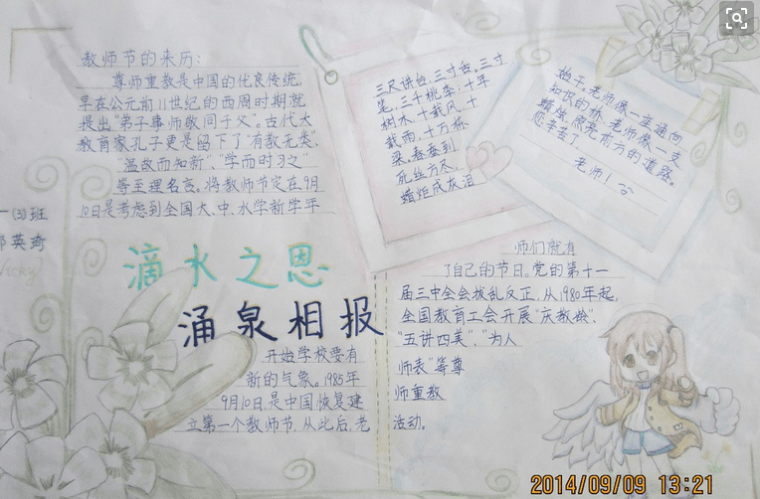 教师节的来历:
尊师重教是中国的优良传统,
早在公元前11世纪的西周时期就
提出"弟子事师敬同于父"。古代大
教育家孔子更是留下了"有教无类".
"温故而知新","学而时习之"
等至理名言。将教师节定在9月
10日是考虑到全国大、中、小学新学年
三尺讲台,三寸舌,三寸
笔,三千桃李;十年
树木,十载风,十
载雨,十万栋
梁。春蚕到
死丝方尽,
蜡炬成灰泪
老师像一座通向
知识的桥,老师像一支
蜡烛,照亮前方的道路。
您辛苦了
老师!
一(3)班
英琦
Vicky
滴水之恩
涌泉相报
开始学校要有
新的气象。1985年
9月10日,是中国恢复建
立第一个教师节,从此后,老
师们就有
了自己的节日。党的第十一
届三中全会拨乱反正,从1980年起,
全国教育工会开展"庆教龄",
"五讲四美","为人
师表"等尊
师重教
活动。
2014/09/09 13:21